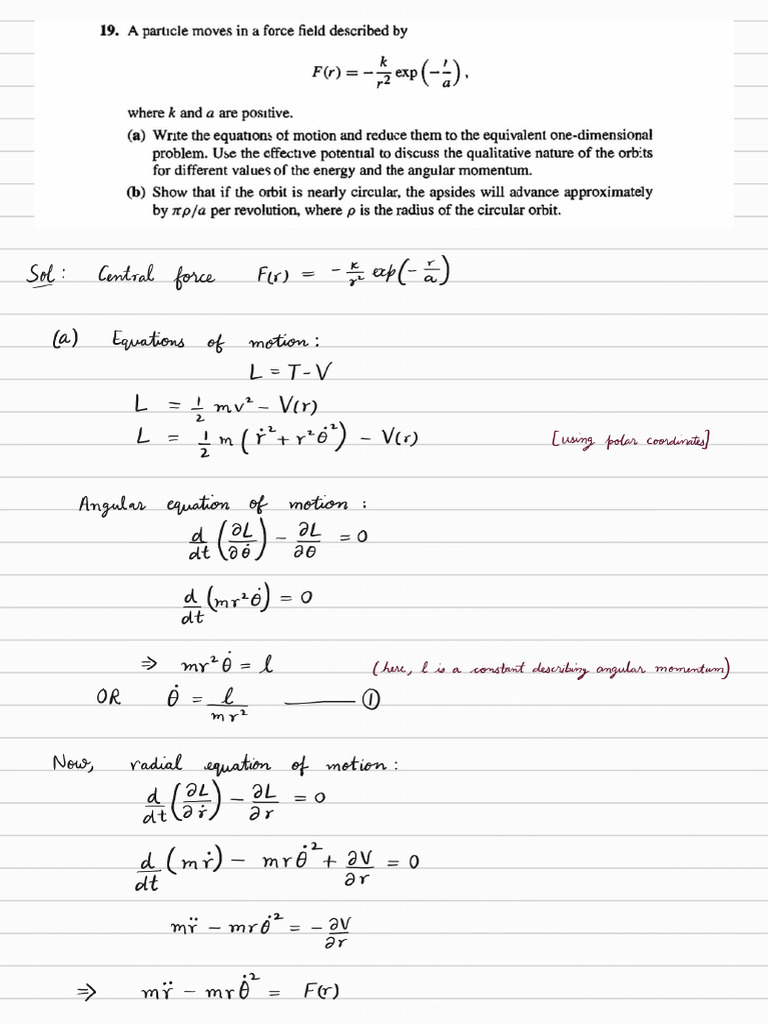 19. A particle moves in a force field described by
F(r) = −k/r² exp(−r/a),
where k and a are positive.
(a) Write the equations of motion and reduce them to the equivalent one-dimensional
problem. Use the effective potential to discuss the qualitative nature of the orbits
for different values of the energy and the angular momentum.
(b) Show that if the orbit is nearly circular, the apsides will advance approximately
by πρ/a per revolution, where ρ is the radius of the circular orbit.
Sol: Central force F(r) = −k/r² exp(−r/a)
(a) Equations of motion:
L = T−V
L = 1/2 mv² − V(r)
L = 1/2 m(ṙ² + r²θ̇²) − V(r) [using polar coordinates]
Angular equation of motion:
d/dt(∂L/∂θ̇) − ∂L/∂θ = 0
d/dt(mr²θ̇) = 0
⇒ mr²θ̇ = l (here, l is a constant describing angular momentum)
OR θ̇ = l/mr² —— ①
Now, radial equation of motion:
d/dt(∂L/∂ṙ) − ∂L/∂r = 0
d/dt(mṙ) − mrθ̇² + ∂V/∂r = 0
mr̈ − mrθ̇² = −∂V/∂r
⇒ mr̈ − mrθ̇² = F(r)